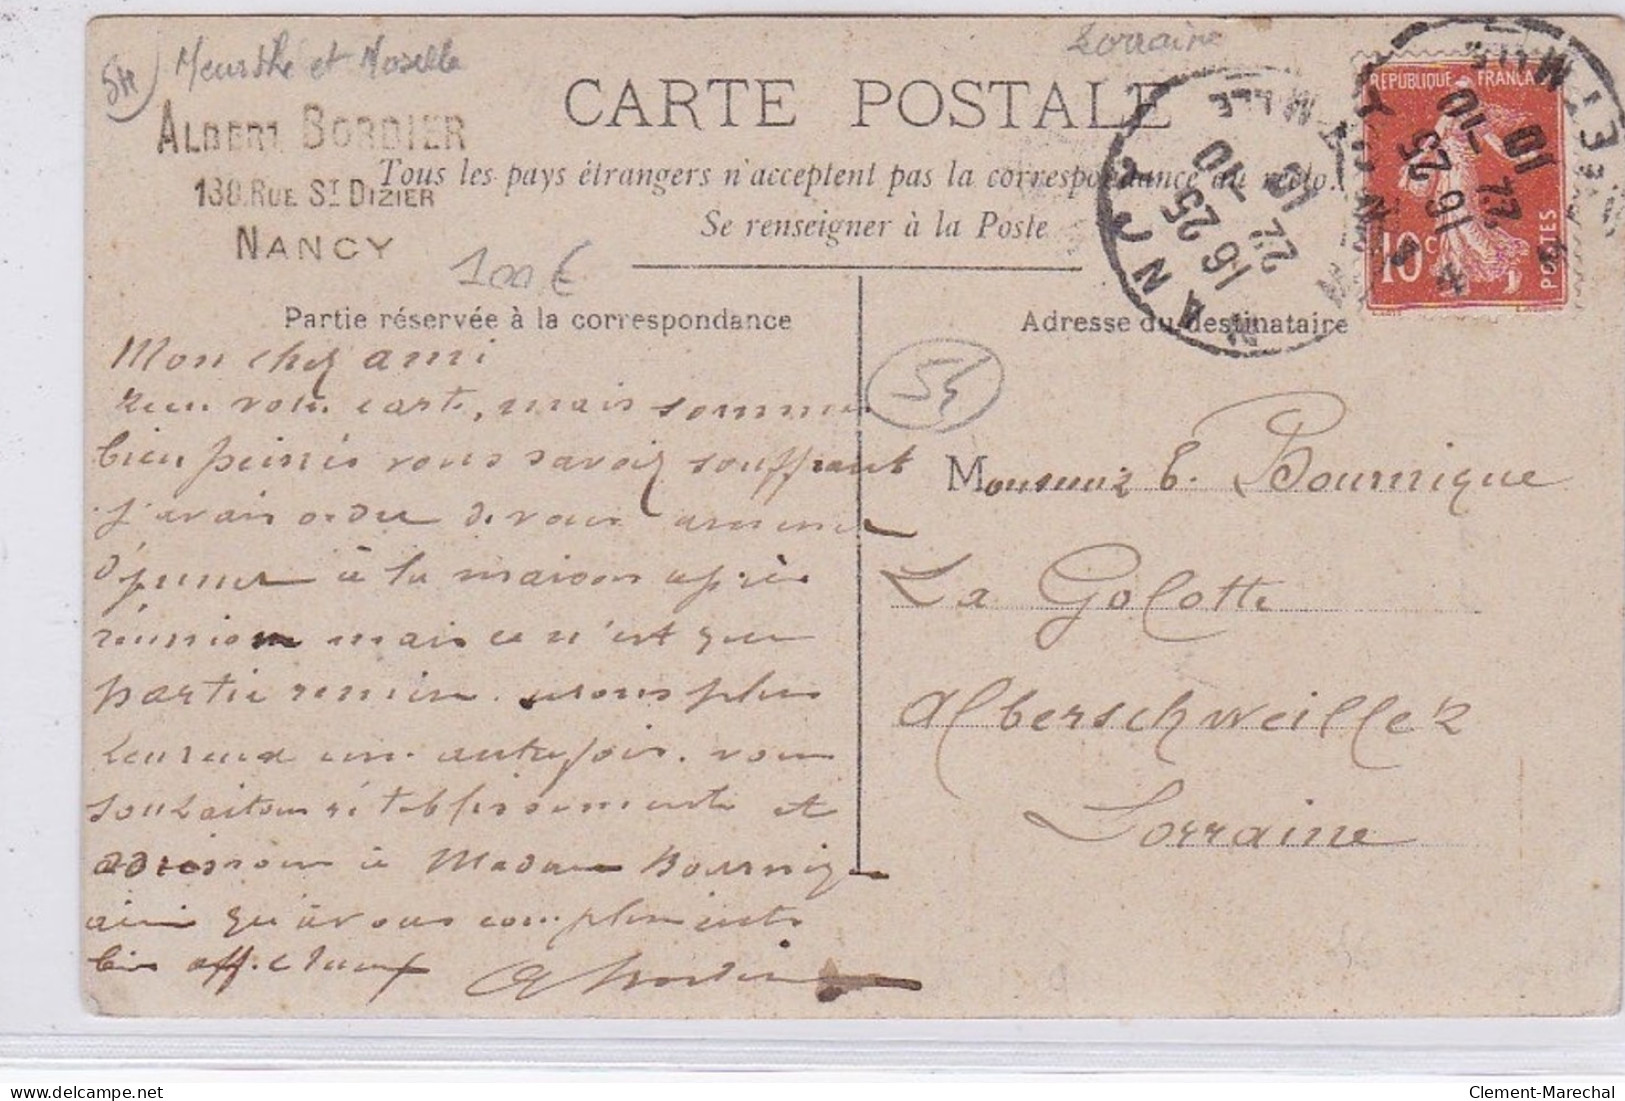 54
Meurthe et Moselle
Lorraine
ALBERT BORDIER
138.RUE ST DIZIER
NANCY
CARTE POSTALE
Tous les pays étrangers n'acceptent pas la correspondance au recto.
Se renseigner à la Poste
100€
RÉPUBLIQUE FRANÇAISE
10c
POSTES
NANCY
16 25
22 -10
10
Partie réservée à la correspondance
Adresse du destinataire
54
Mon cher ami
reçu votre carte, mais sommes
bien peinés vous savoir souffrant
j'avais ordre de vous amener
à la maison après
réunion mais ce n'est que
partie remise. serons plus
heureux une autrefois. vous
souhaitons rétablissements et
à Madame Bournique
ainsi qu'à vous compliments
bien affectueux
ABordier
Monsieur E. Bournique
La Golotte
Alberschweiller
Lorraine
Clement-Marechal